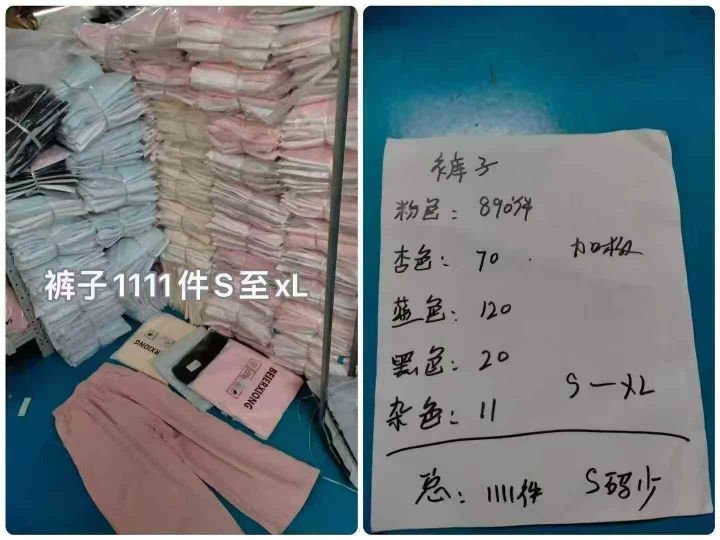 裤子1111件S至xL
BEIERXIONG
RXIONG
裤子
粉色：890件
杏色：70
加极
蓝色：120
黑色：20
杂色：11
S—XL
总：1111件
S码少